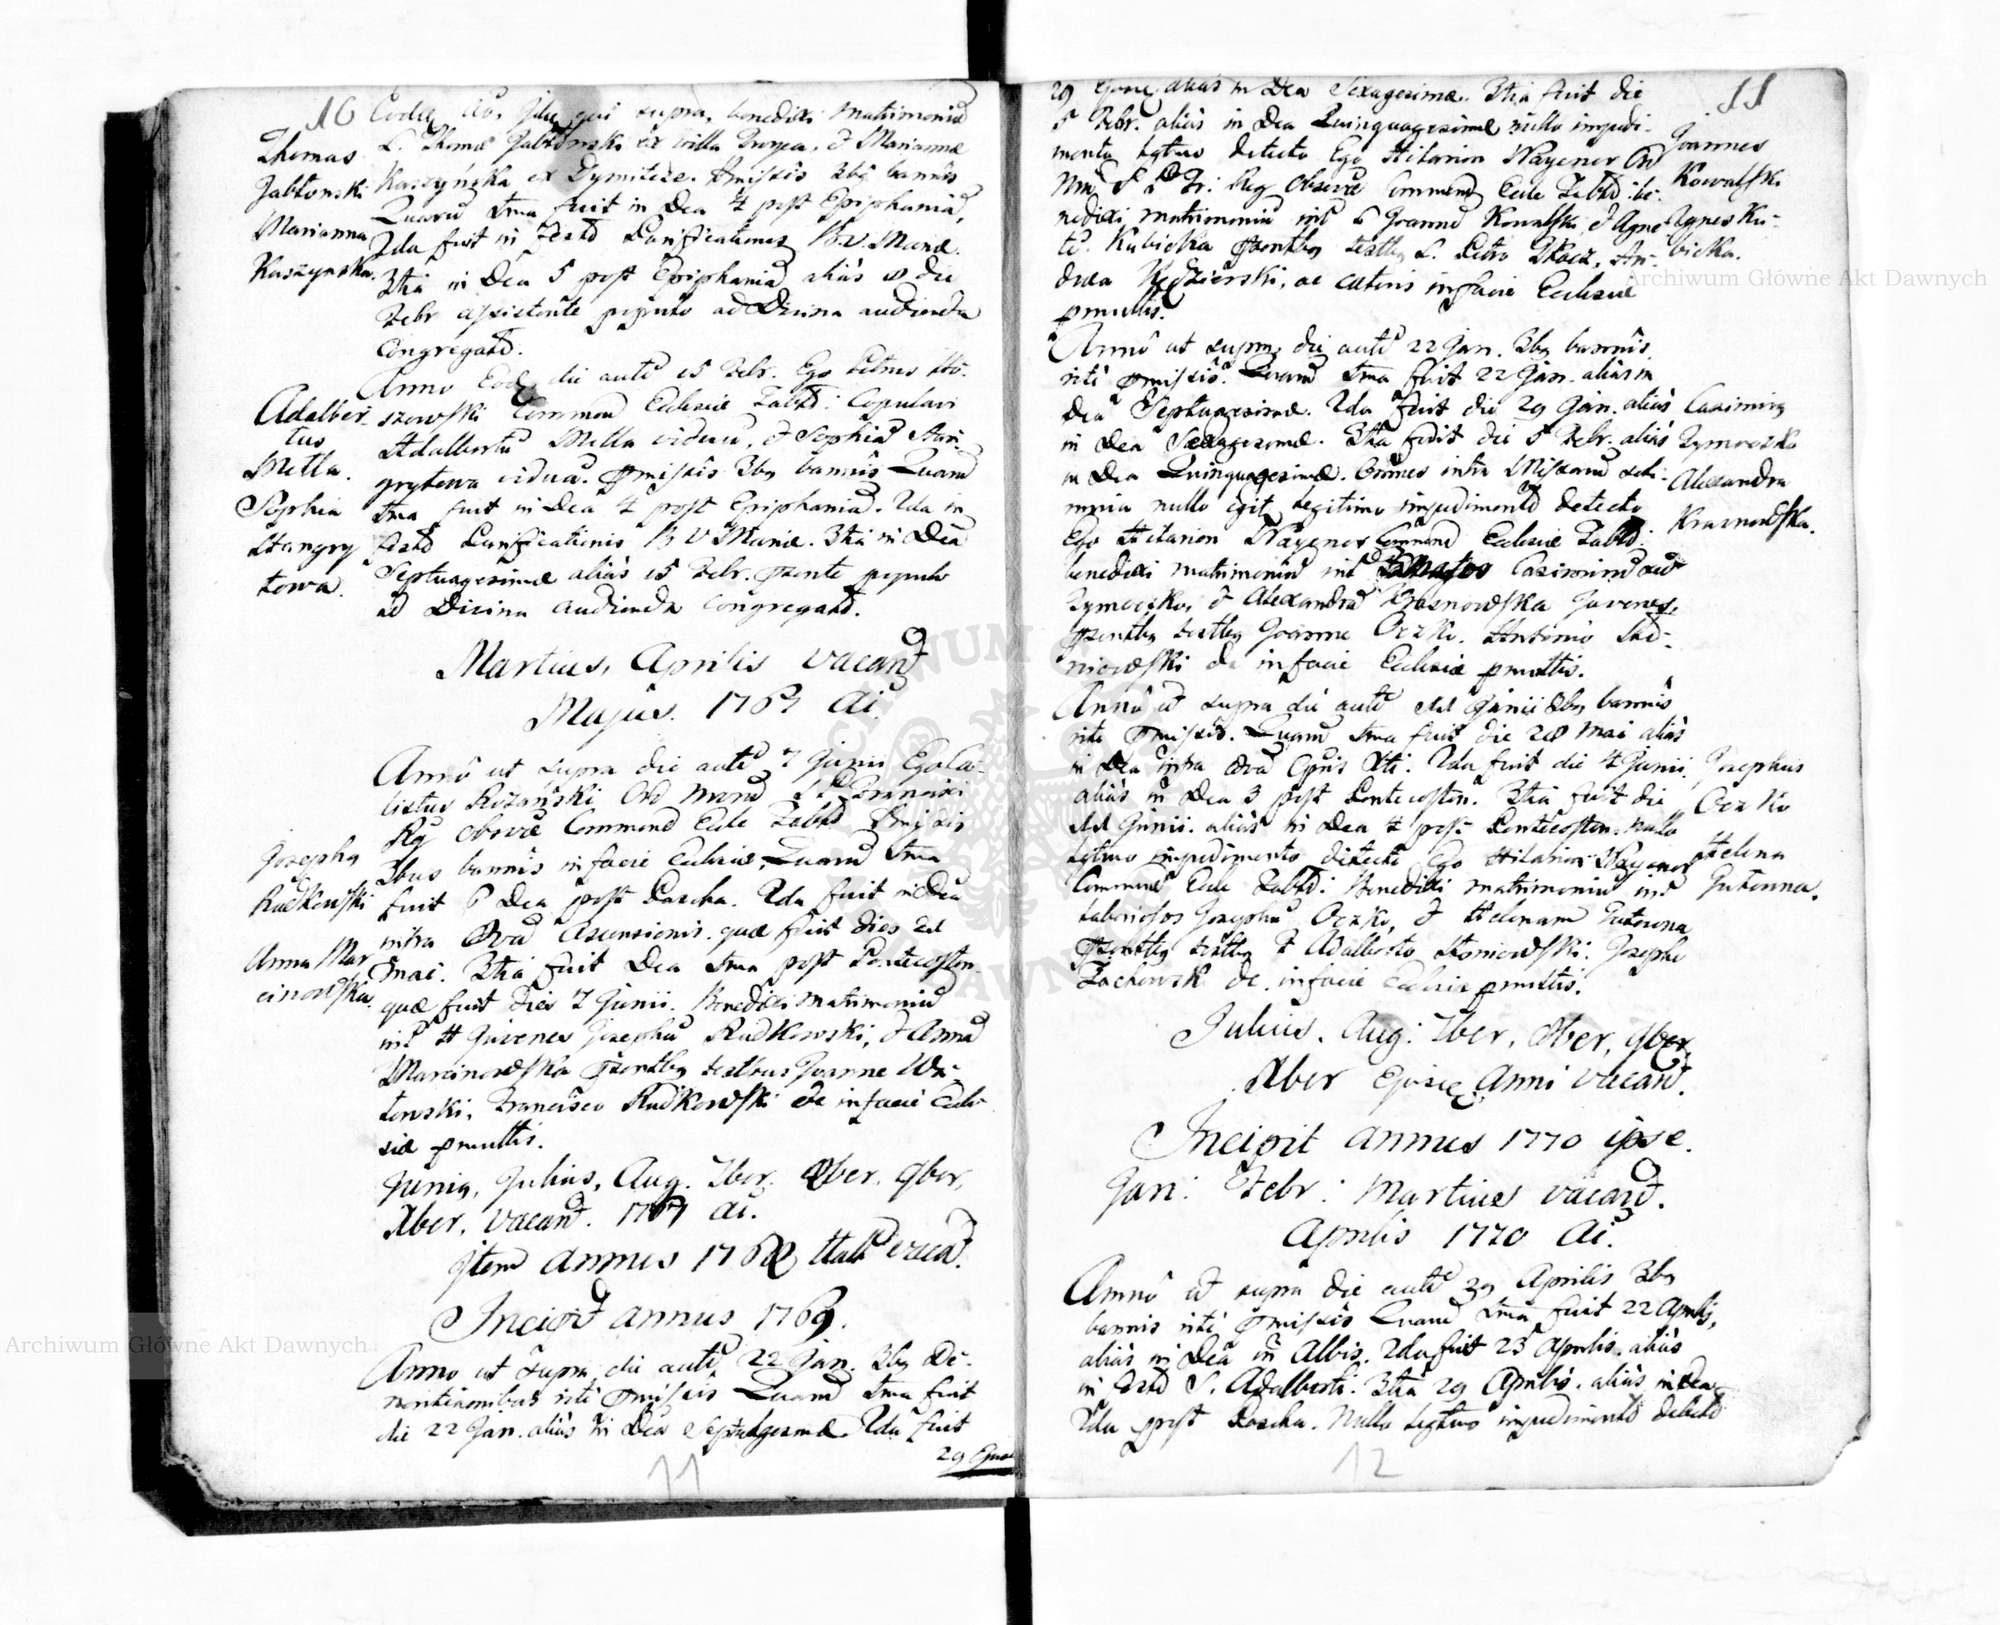 10
Eodem Ao, die qui supra, benedixi matrimoniũ
L. Thomæ Jabłonski ex villa & Mariannæ
Kaszyńska ex Præmissis 3bq bannis
Quarũ 1ma fuit in Dca 4 post Epiphaniã,
2da fuit in festo Purificationis B.V. Mariæ.
3tia in Dca 5 post Epiphaniã alias 8 die
Febr assistente populo ad Divina audienda
Congregato.
Thomas
Jabłonski
Marianna
Kaszynska.
Anno Eodẽ die autẽ 15 Febr. Ego Petrus
szowski Commend Ecclesiæ Zabłd: Copulavi
Adalbertũ Metla viduũ, & Sophiã Stan-
grytowa viduã. præmissis 3bq bannis Quarũ
1ma fuit in Dca 4 post Epiphaniã. 2da in
festo Purificationis B V Mariæ. 3tia in Dca
Septuagesimæ alias 15 Febr. præsente populo
ad Divina audienda congregato.
Adalber-
tus
Metla.
Sophia
Stangry
towa.
Martius, Aprilis vacant
Majus. 1767 Ai.
Anno ut supra die autẽ 7 Junii Ego Ca-
lixtus Rożański Ord Minorũ S P Francisci
Rg Obserũæ Commend Ecclæ Zabłd Præmissis
3bus bannis in facie Ecclesiæ, Quarũ 1ma
fuit 6 Dca post Pascha. 2da fuit in Dca
infra Octavã Ascensionis. quæ fuit dies 31
Mai. 3tia fuit Dca 1ma post Pentecosten
quæ fuit dies 7 Junii. Benedixi matrimoniũ
int H Juvenes Josephũ Rudkowski, & Annã
Marcinowska præsentibq testibus Joanne Wi-
towski, Francisco Rudkowski &c in facie Eccle
siæ pmultis.
Josephq
Rudkowski
Anna Mar
cinowska.
Juniq, Julius, Aug. 7ber. 8ber. 9ber,
Xber. vacant. 1767 Ai.
Item annus 1768 totq vacat.
Incipit annus 1769.
Anno ut supra, die autẽ 22 Jan. 3bq De-
nuntiationibus ritè præmissis Quarũ 1ma fuit
die 22 Jan. alias in Dca Septuagesimæ 2da fuit
29 Janr
11
11
29 Janr, alias in Dca Sexagesimæ. 3tia fuit die
5 Febr. alias in Dca Quinquagesimæ nullo impedi-
mento lgtmo detecto Ego Hilarion Wagener Ord
Min S P Fr: Reg Observæ Commend Ecclæ Zabłd: be-
nedixi matrimoniũ int L Joannẽ Kowalski & Agne
te Kubicka præsentibq testibq L. Petro Tkacz, An-
drea Kędzierski, ac cæteris in facie Ecclesiæ
pmultis.
Joannes
Kowalski
Agnes Ku-
bicka.
Archiwum Główne Akt Dawnych
Anno ut supra, die autẽ 22 Jan. 3bq bannis
ritè præmissis. Quarũ 1ma fuit 22 Jan. alias in
Dca Septuagesimæ. 2da fuit die 29 Jan. alias
in Dca Sexagesimæ. 3tia fuit die 5 Febr. alias
in Dca Quinquagesimæ. Omnes intra Missarũ sole-
mnia nullo legitimo impedimento detecto
Ego Hilarion Wagener Commend Ecclesiæ Zabłd:
benedixi matrimoniũ int Casimirũ
Szymoczko, & Alexandrã Krasnowska Juvenes,
præsentibq testibq Joanne Oczko, Antonio Sad-
niewski &c in facie Ecclesiæ pmultis.
Casimirq
Szymoczko
Alexandra
Krasnowska.
Anno ut supra die autẽ 11 Junii 3bq bannis
ritè præmissis. Quarũ 1ma fuit die 28 Mai alias
in Dca infra Octavã Cpris Xti. 2da fuit die 4 Junii
alias in Dca 3 post Pentecosten. 3tia fuit die
11 Junii. alias in Dca 4 post Pentecosten. nullo
lgtmo impedimento detecto Ego Hilarion Wagener
Commend Ecclæ Zabłd: Benedixi matrimoniũ int
laboriosos Josephũ Oczko, & Helenam Gutowna
præsentibq testibq F Adalberto Słoniewski. Josepho
Zachowsk &c. in facie Ecclesiæ pmultis.
Josephus
Oczko
Helena
Gutowna.
Julius. Aug: 7ber, 8ber, 9ber,
Xber Ejusdẽ Anni vacant.
Incipit annus 1770 ipse.
Jan: Febr: Martius vacant.
Aprilis 1770 Ai.
Anno ut supra die autẽ 29 Aprilis 3bq
bannis ritè præmissis Quarũ 1ma fuit 22 Aprilis,
alias in Dca in Albis. 2da fuit 23 Aprilis. alias
in festo S. Adalberti. 3tia 29 Aprilis. alias in Dca
2da post Pascha. Nullo legtmo impedimento detecto
12
Archiwum Główne Akt Dawnych